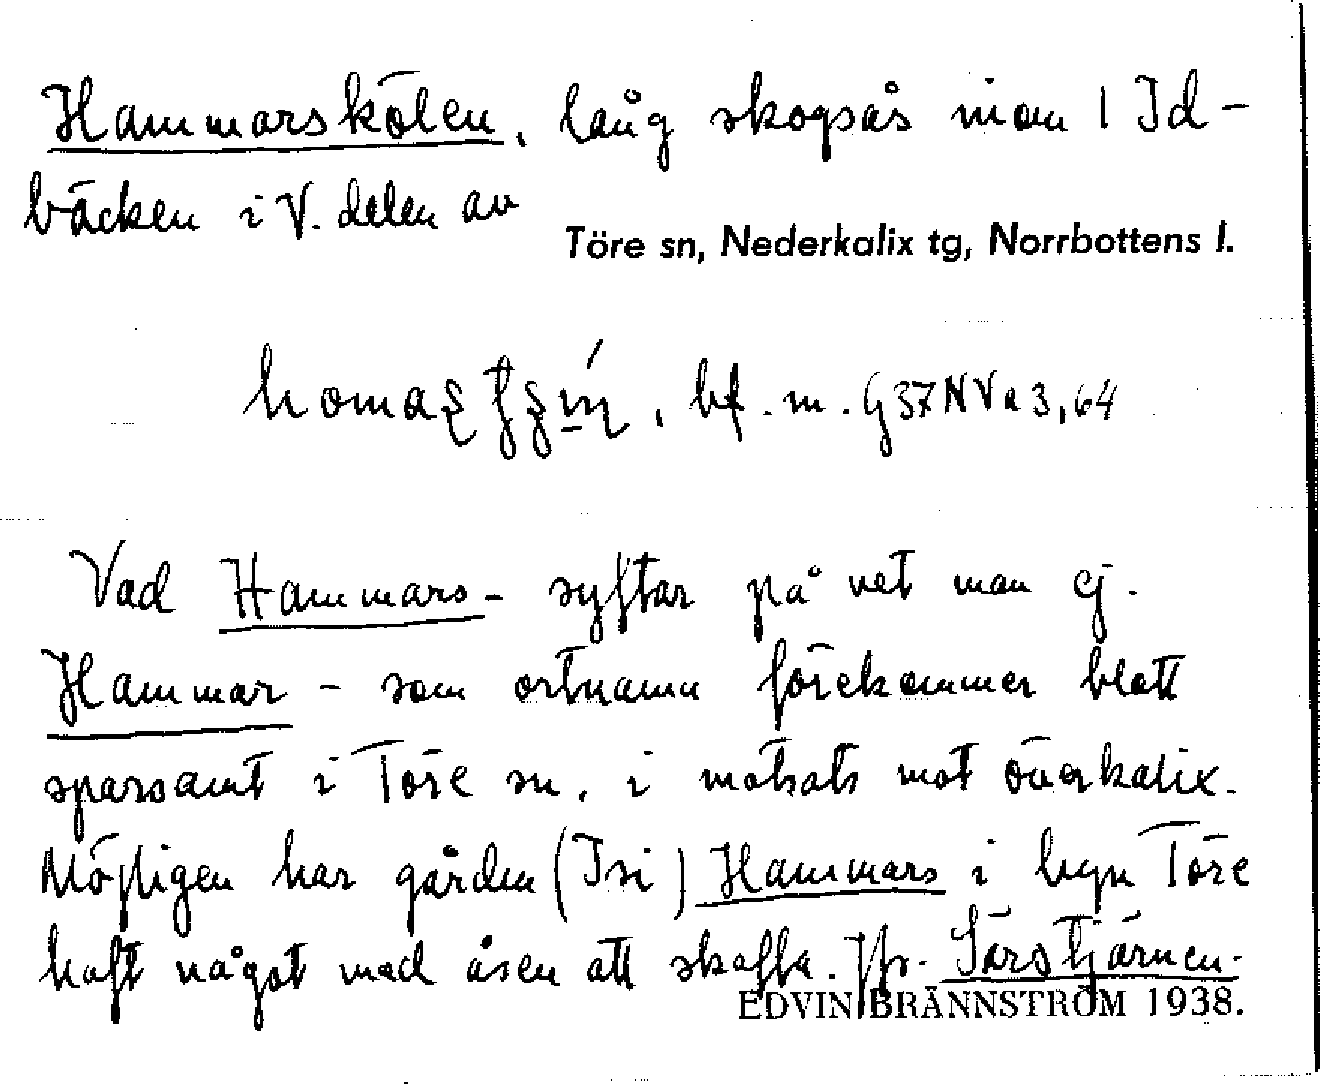 Hammarskölen, lång skogsås n om l Id-
bäcken i V. delen av
Töre sn, Nederkalix tg, Norrbottens l.
bf. m. G37NVa3,64
Vad Hammars- syftar på vet man ej.
Hammar- som ortnamn förekommer blott
sparsamt i Töre sn, i motsats mot Överkalix.
Möjligen har gården (Isi) Hammars i byn Töre
haft något med åsen att skaffa. Jfr. Särstjärnen.
EDVIN BRÄNNSTRÖM 1938.